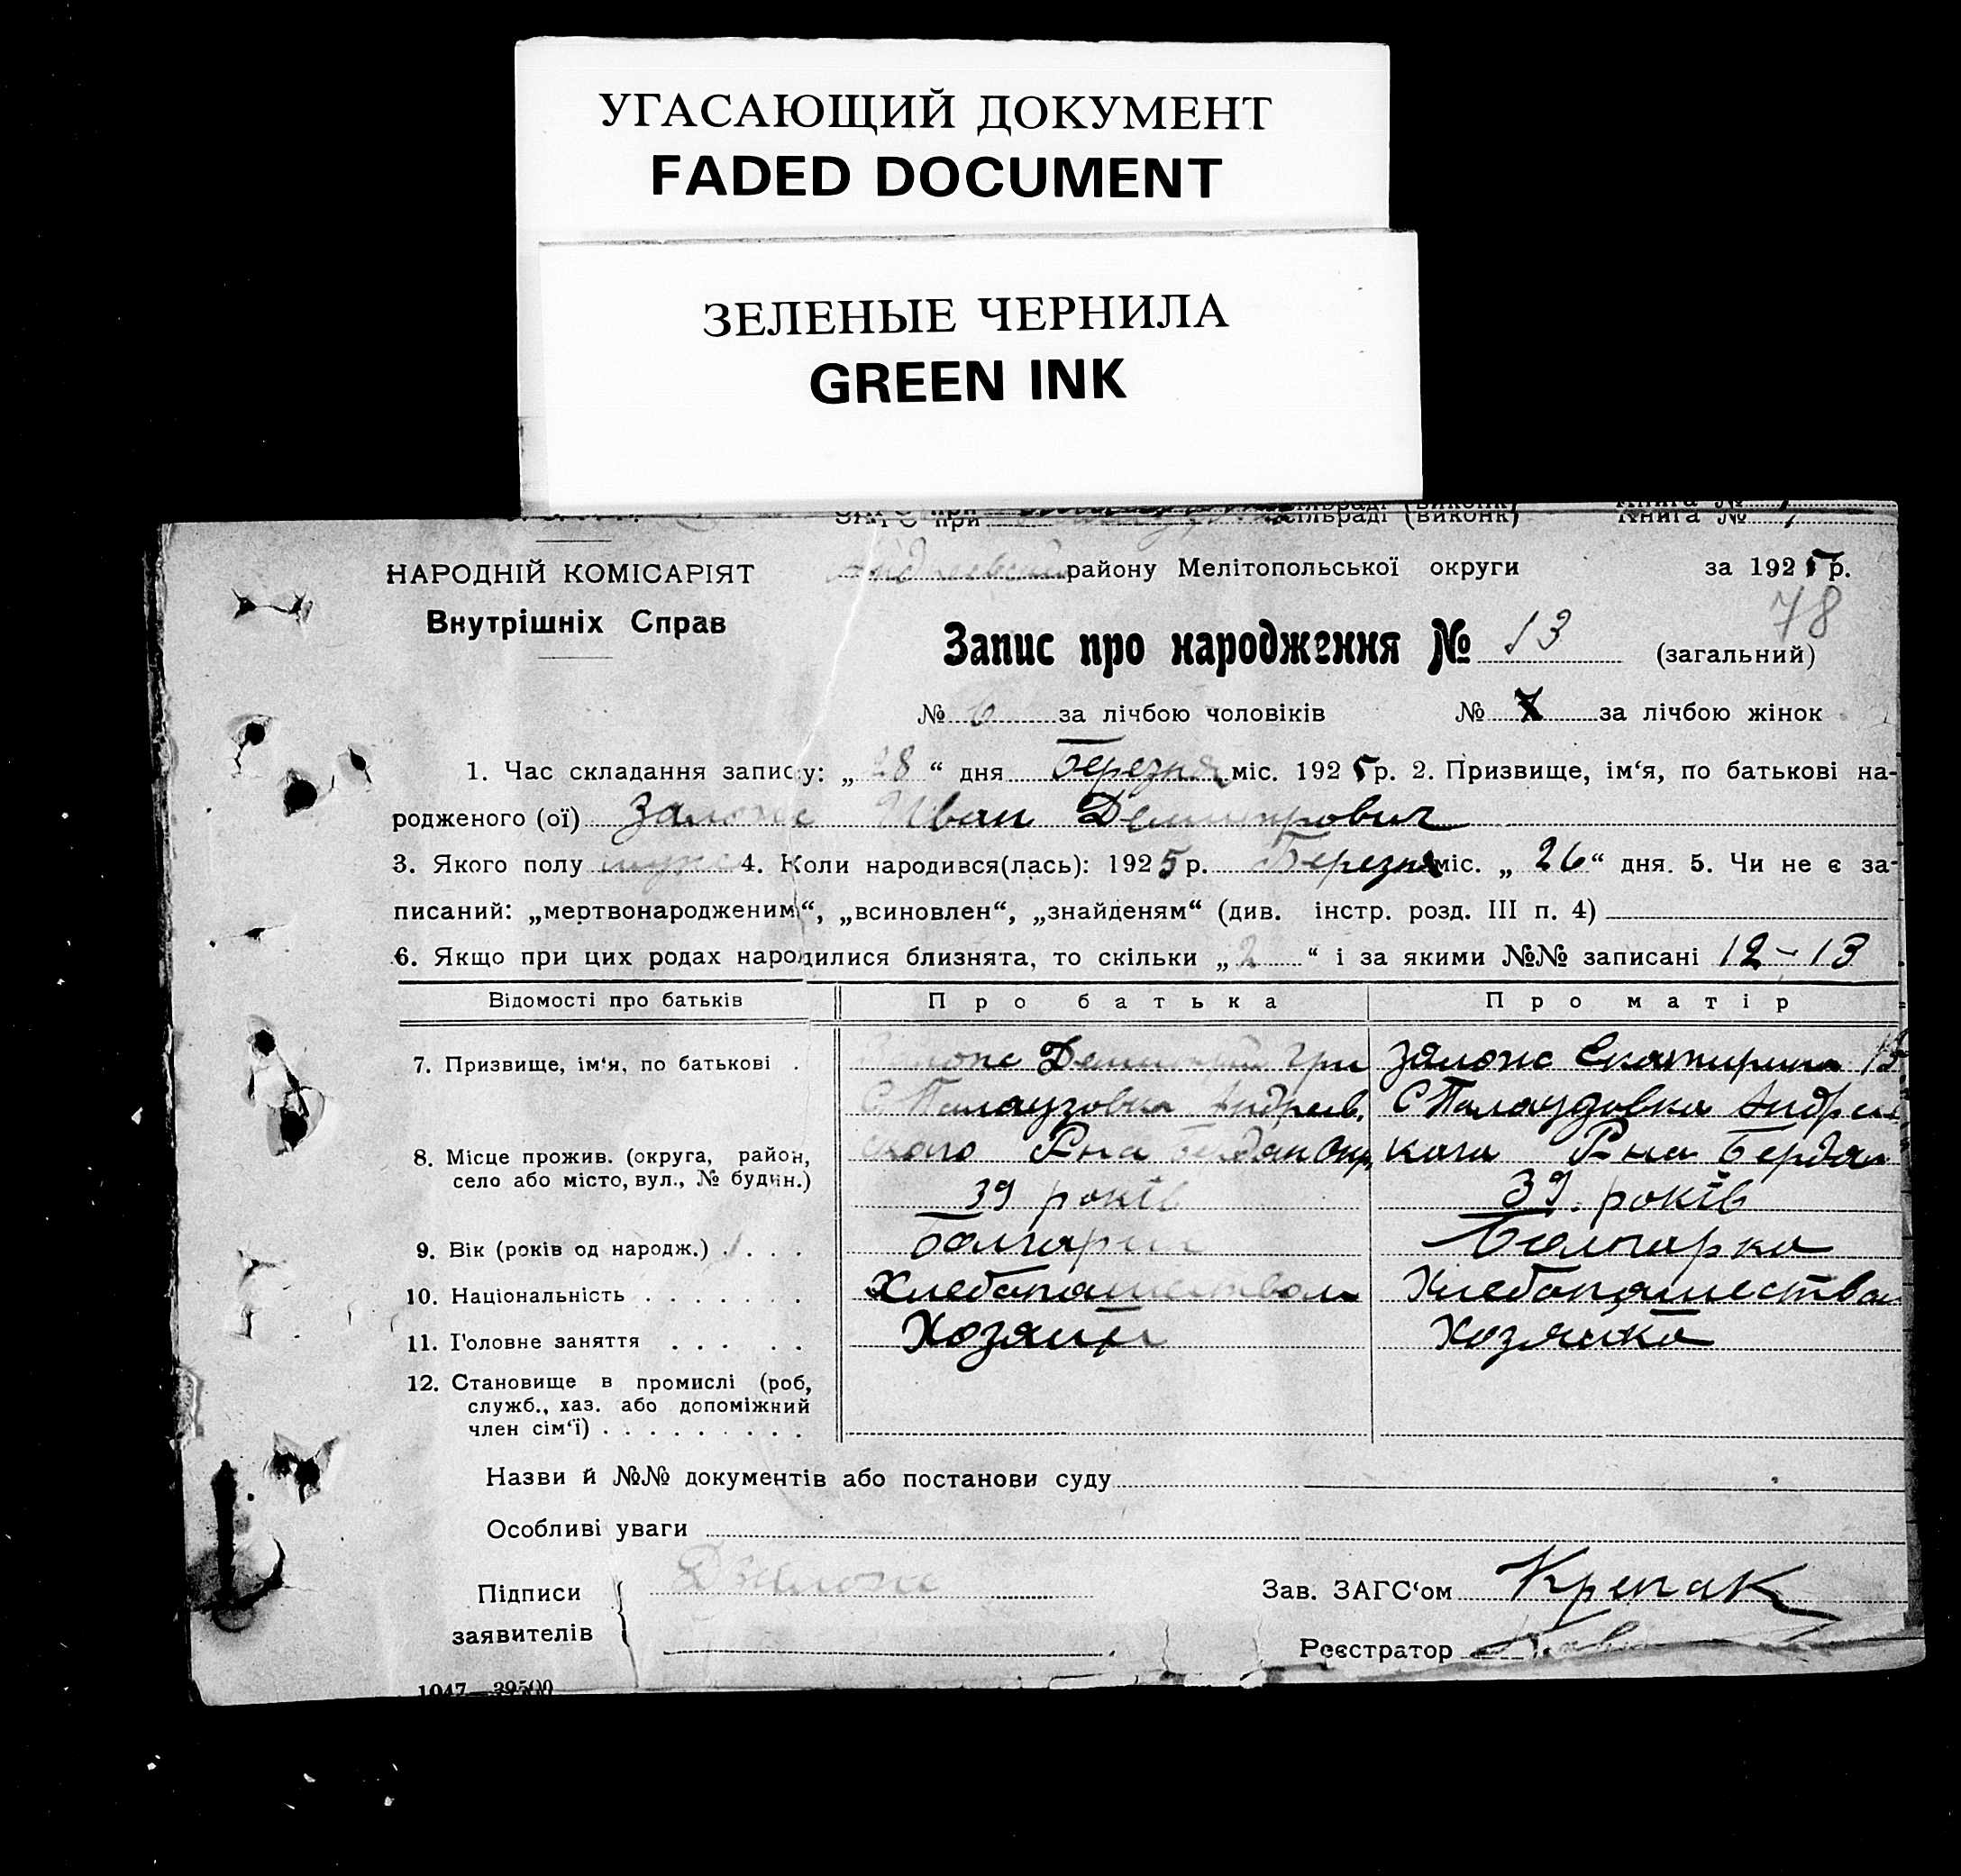 УГАСАЮЩИЙ ДОКУМЕНТ
FADED DOCUMENT
ЗЕЛЕНЫЕ ЧЕРНИЛА
GREEN INK
ЗАГС при сільраді (виконк) Книга № 1
НАРОДНІЙ КОМІСАРІЯТ
району Мелітопольської округи за 1925 р.
Внутрішніх Справ
78
Запис про народження № 13 (загальний)
№ 6 за лічбою чоловіків № 7 за лічбою жінок
1. Час складання запису: „28“ дня Березня міс. 1925 р. 2. Призвище, ім‘я, по батькові на-
родженого (ої) Залопе Иван Демитрович
3. Якого полу муже 4. Коли народився(лась): 1925 р. Березня міс. „26“ дня. 5. Чи не є за-
писаний: „мертвонародженим“, „всиновлен“, „знайденям“ (див. інстр. розд. III п. 4)
6. Якщо при цих родах народилися близнята, то скільки „2“ і за якими №№ записані 12-13
Відомості про батьків Про батька Про матір
7. Призвище, ім‘я, по батькові . Гри
С Палаузовка Андреев.
8. Місце прожив. (округа, район, ского Р-на Бердян Окр,
село або місто, вул., № будин.) 39 років 39 років
9. Вік (років од народж.) . . . . Болгарин Болгарка
10. Національність . . . . . . . Хлебопашеством Хлебопашество
11. Головне заняття . . . . . Хозяин Хозяйка
12. Становище в промислі (роб,
служб., хаз. або допоміжний
член сім‘ї) . . . . . . . . .
Назви й №№ документів або постанови суду
Особливі уваги
Підписи Зав. ЗАГС‘ом Крепак
заявителів Реєстратор
1047—39500